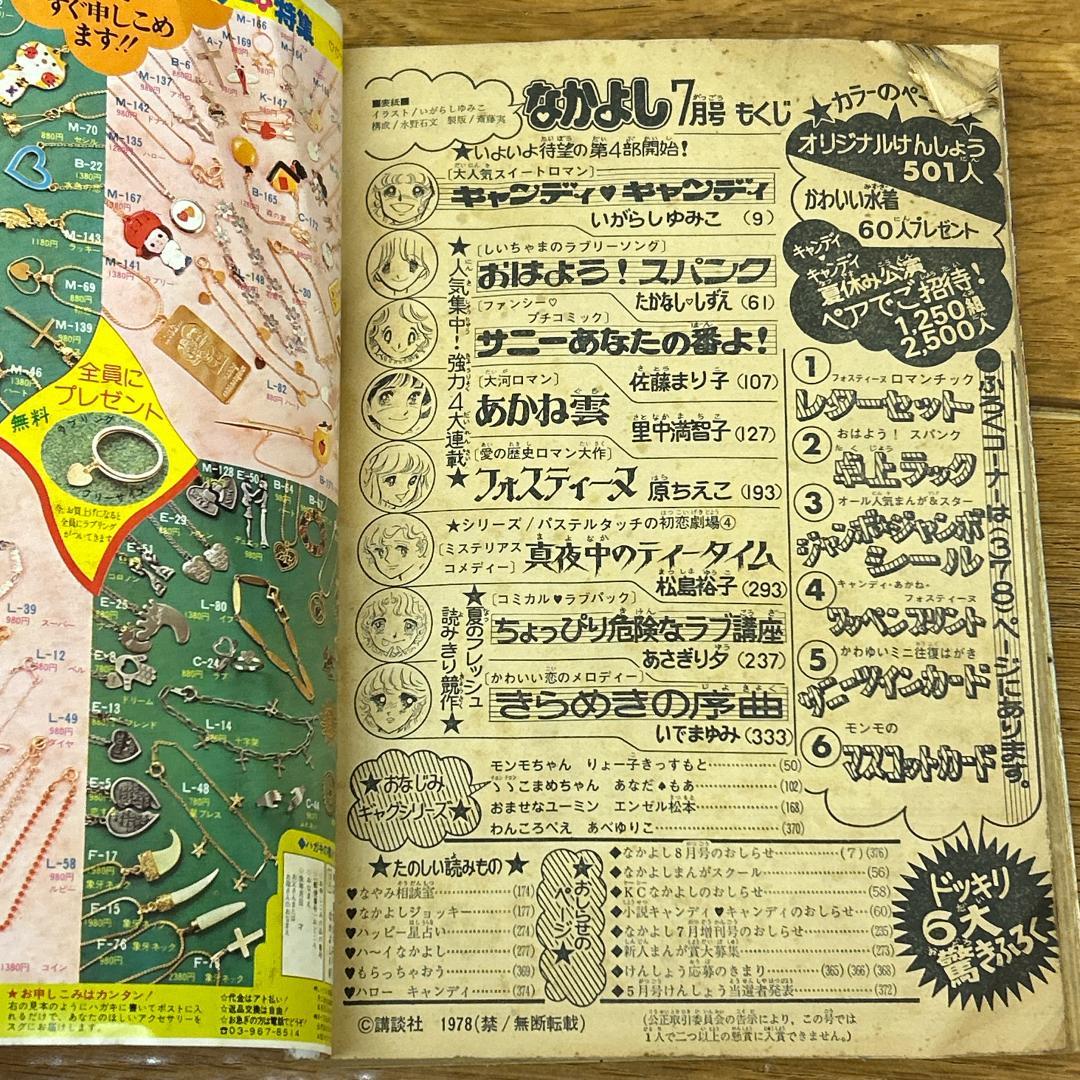 すぐ申しこめ
ます!!
特集
M-166
M-169
A-7
M-164
B-6
M-137
K-147
M-142
M-135
M-70
B-22
M-167
B-165
M-143
1180円
ラッキー
M-141
L-148
M-69
M-139
M-46
L-82
全員に
プレゼント
無料
ラブリング
フリーサイズ
M-128
E-50
B-64
E-29
E-51
コロノン
E-25
L-80
L-39
スーパー
L-12
ベル
E-8
C-24
ドリーム
E-13
L-14
十字架
L-49
ダイヤ
E-5
L-48
C-44
L-58
ルビー
F-17
象牙ネック
F-15
象牙ネック
F-76
象牙ネック
2380円
象牙ネック
1380円
コイン
★お申しこみはカンタン!
右の見本のようにハガキに書いてポストに入
れるだけで、あなたのほしいアクセサリーを
スグにお届けします。
☆代金はアト払い!
☆返品交換は自由!
☆お急ぎの方は電話でどうぞ!
☎03-967-8514
■表紙■
イラスト/いがらしゆみこ
構成/水野石文 製版/斎藤実
なかよし7月号 もくじ
★いよいよ待望の第4部開始!
[大人気スイートロマン]
キャンディ♥キャンディ
いがらしゆみこ (9)
★人気集中!強力4大連載★
[しいちゃまのラブリーソング]
おはよう!スパンク
たかなし♥しずえ (61)
[ファンシー♡
プチコミック]
サニーあなたの番よ!
佐藤まり子 (107)
[大河ロマン]
あかね雲
里中満智子 (127)
[愛の歴史ロマン大作]
フォスティーヌ 原ちえこ (193)
★シリーズ/パステルタッチの初恋劇場④
[ミステリアス
コメディー]
真夜中のティータイム
松島裕子 (293)
★夏のフレッシュ読みきり競作★
[コミカル♥ラブパック]
ちょっぴり危険なラブ講座
あさぎり夕 (237)
[かわいい恋のメロディー]
きらめきの序曲
いでまゆみ (333)
★おなじみ
ギャグシリーズ★
モンモちゃん りょー子きっすもと (50)
こまめちゃん あなだ♠もあ (102)
おませなユーミン エンゼル松本 (168)
わんころべえ あべゆりこ (370)
★たのしい読みもの★
♥なやみ相談室 (174)
♥なかよしジョッキー (177)
♥ハッピー星占い (274)
♥ハ〜イなかよし (277)
♥もらっちゃおう (369)
♥ハロー キャンディ (374)
★おしらせのページ★
◆なかよし8月号のおしらせ (7)(376)
◆なかよしまんがスクール (56)
◆KCなかよしのおしらせ (58)
◆小説キャンディ♥キャンディのおしらせ (60)
◆なかよし7月増刊号のおしらせ (235)
◆新人まんが賞大募集 (273)
◆けんしょう応募のきまり (365)(366)(368)
◆5月号けんしょう当選者発表 (372)
©講談社 1978(禁/無断転載)
(公正取引委員会の告示により、この号では
1人で二つ以上の懸賞に入賞できません。)
★カラーのペー
オリジナルけんしょう
501人
かわいい水着
60人プレゼント
キャンディ♥キャンディ
夏休み公演
ペアでご招待!
1,250組
2,500人
●ふろくコーナーは(378)ページにあります。
1 フォスティーヌ ロマンチック
レターセット
2 おはよう! スパンク
卓上ラック
3 オール人気まんが&スター
ジャンボ・ジャンボ
シール
4 キャンディ・あかね・
フォスティーヌ
ワッペンプリント
5 かわゆいミニ往復はがき
サニーツインカード
6 モンモの
マスコットカード
ドッキリ
6大
驚きふろく